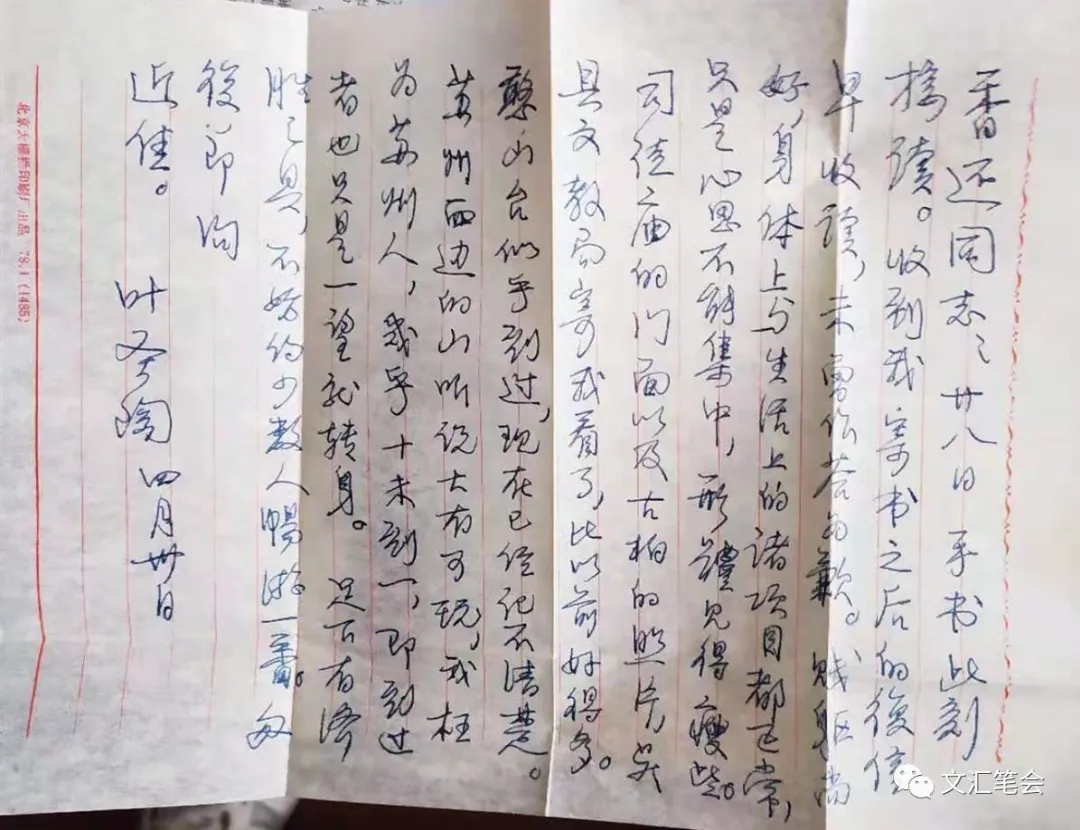 香还同志：廿八日手书此刻
接读。收到我寄书之后的復信
早收读，未曾作答为歉。贱躯尚
好，身体上与生活上的诸项目都正常，
只是心思不能集中，形體见得瘦些。
司徒庙的门面以及古柏的照片，吴
县文教局寄我看了，比以前好得多。
憨山台似乎到过，现在已经记不清楚。
苏州西边的山听说大有可玩，我枉
为苏州人，幾乎十未到一，即到过
者也只是一望就转身。 足下有济
胜之具，不妨约少数人暢游一番。匆
復即询
近佳。
叶圣陶 四月卅日
北京大栅栏印刷厂出品 78.1 (1485)
文汇笔会